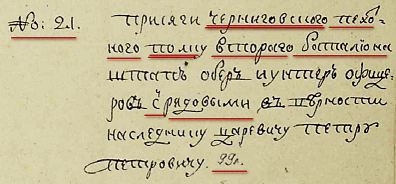 №: 21. присяги черниговского пехо⸗
ного полку второго баталиона
штапъ оберъ иунтеръ офице⸗
ровъ с рядовыми въ верности
наследнику царевичу петру
петровичу. 99л.